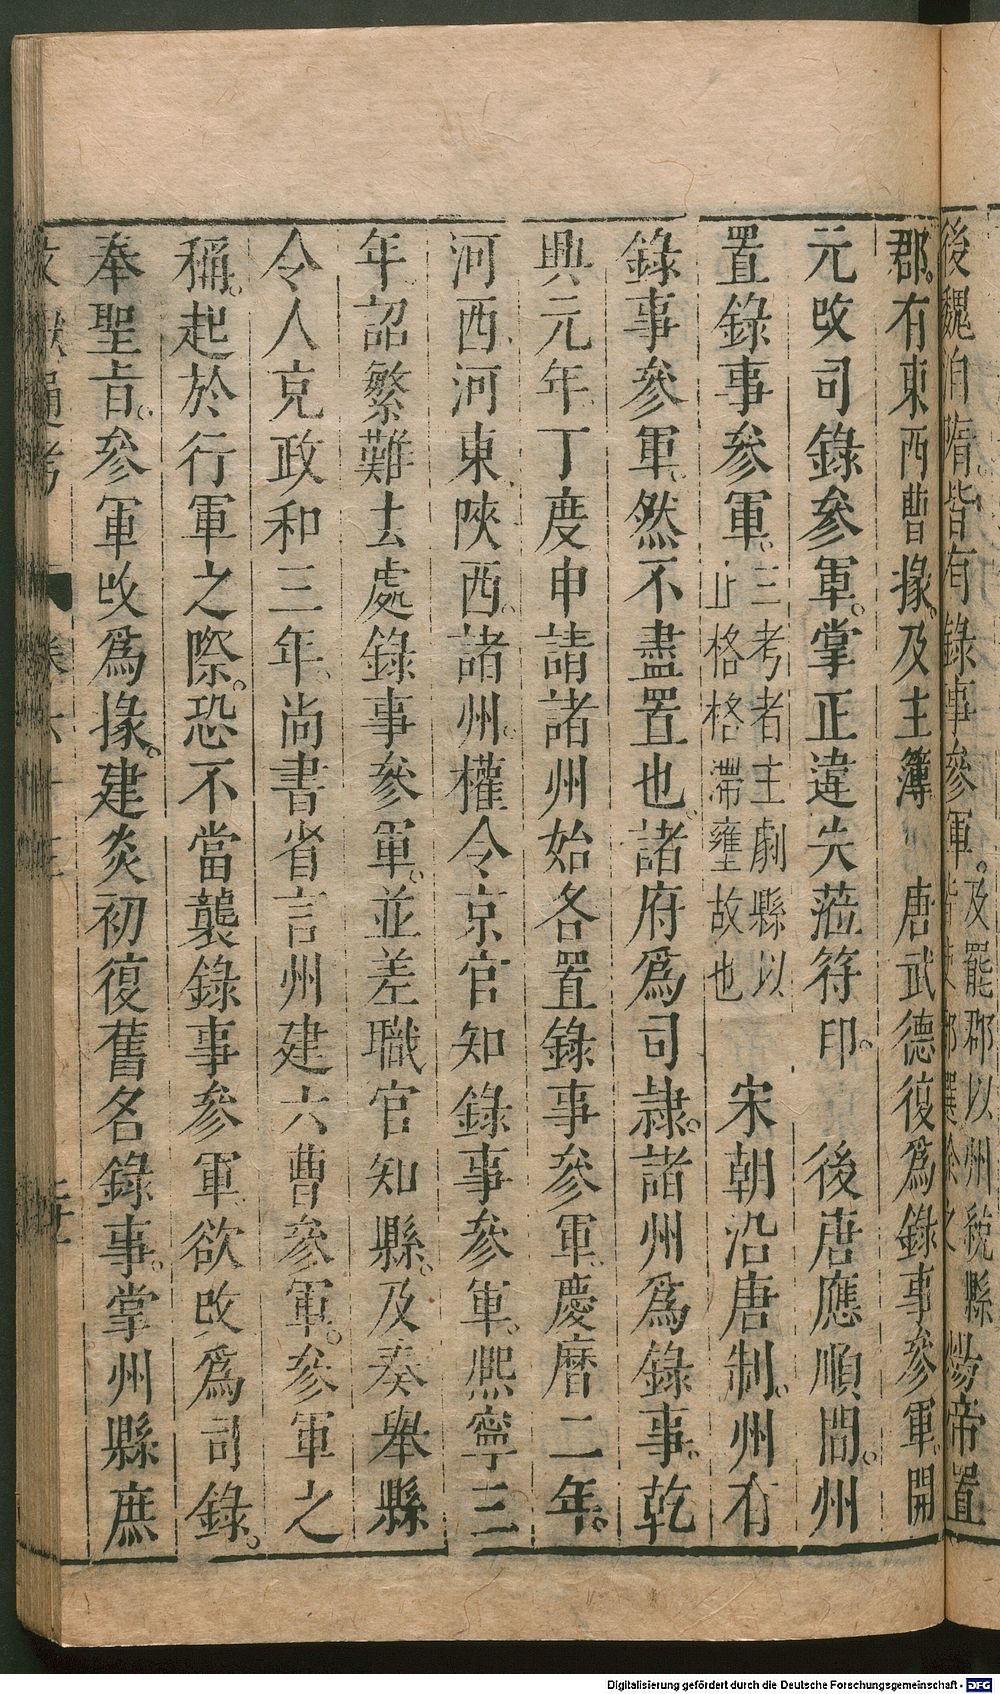 後魏泊隋皆有錄事參軍。及罷郡以州統縣煬帝置
郡。有東西曹掾。及主簿 唐武德復爲錄事參軍。開
元改司錄參軍。掌正違失蒞符印。 後唐應順間。州
置錄事參軍。三考者主劇縣以
止格格滯壅故也 宋朝沿唐制。州有
錄事參軍。然不盡置也。諸府爲司隷。諸州爲錄事。乾
興元年。丁度申請諸州始各置錄事參軍。慶曆二年。
河西河東陝西。諸州。權令京官知錄事參軍。熙寧三
年詔繁難去處錄事參軍。並差職官知縣。及奏舉縣
令人充政和三年。尚書省言州建六曹參軍。參軍之
稱。起於行軍之際。恐不當襲錄事參軍欲改爲司錄。
奉聖旨。參軍改爲掾。建炎初復舊名錄事。掌州縣庶
Digitalisierung gefördert durch die Deutsche Forschungsgemeinschaft - DFG